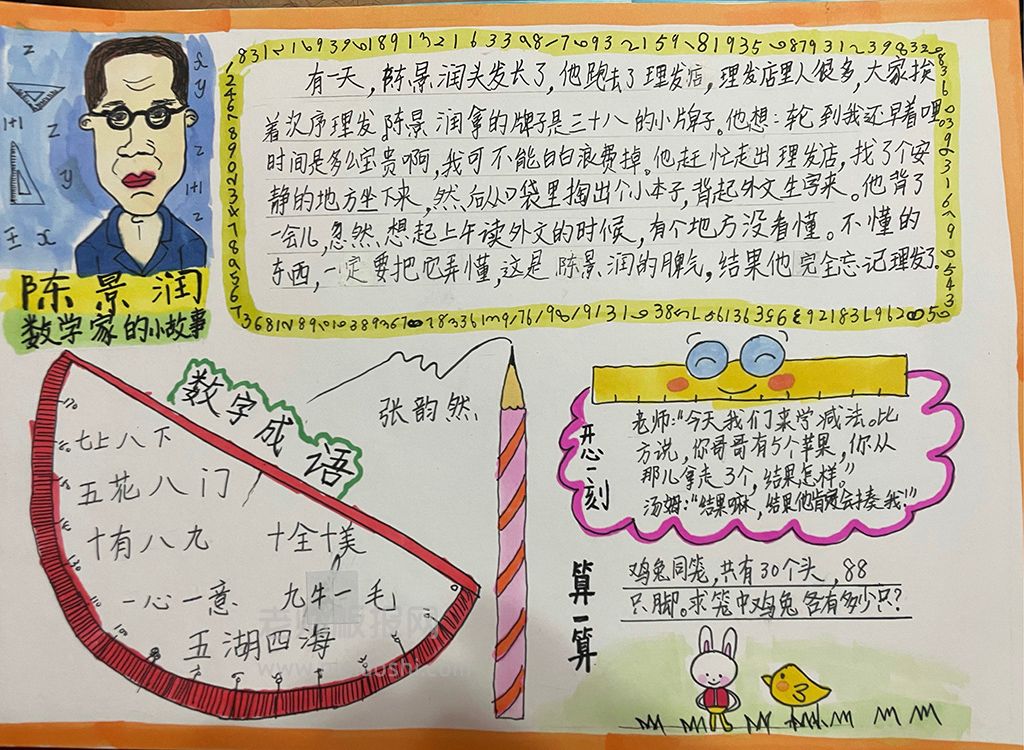 陈景润
数学家的小故事
有一天，陈景润头发长了，他跑去了理发店，理发店里人很多，大家挨
着次序理发陈景润拿的牌子是三十八的小牌子。他想：轮到我还早着哩
时间是多么宝贵啊，我可不能白白浪费掉。他赶忙走出理发店，找了个安
静的地方坐下来，然后从口袋里掏出个小本子，背起外文生字来。他背了
一会儿，忽然想起上午读外文的时候，有个地方没看懂。不懂的
东西，一定要把它弄懂，这是陈景润的脾气。结果他完全忘记理发了。
数字成语
七上八下
五花八门
十有八九 十全十美
一心一意 九牛一毛
五湖四海
张韵然
开心一刻
老师：“今天我们来学减法。比
方说，你哥哥有5个苹果，你从
那儿拿走3个，结果怎样。”
汤姆：“结果嘛，结果他肯定会揍我！”
算一算
鸡兔同笼，共有30个头，88
只脚。求笼中鸡兔各有多少只？